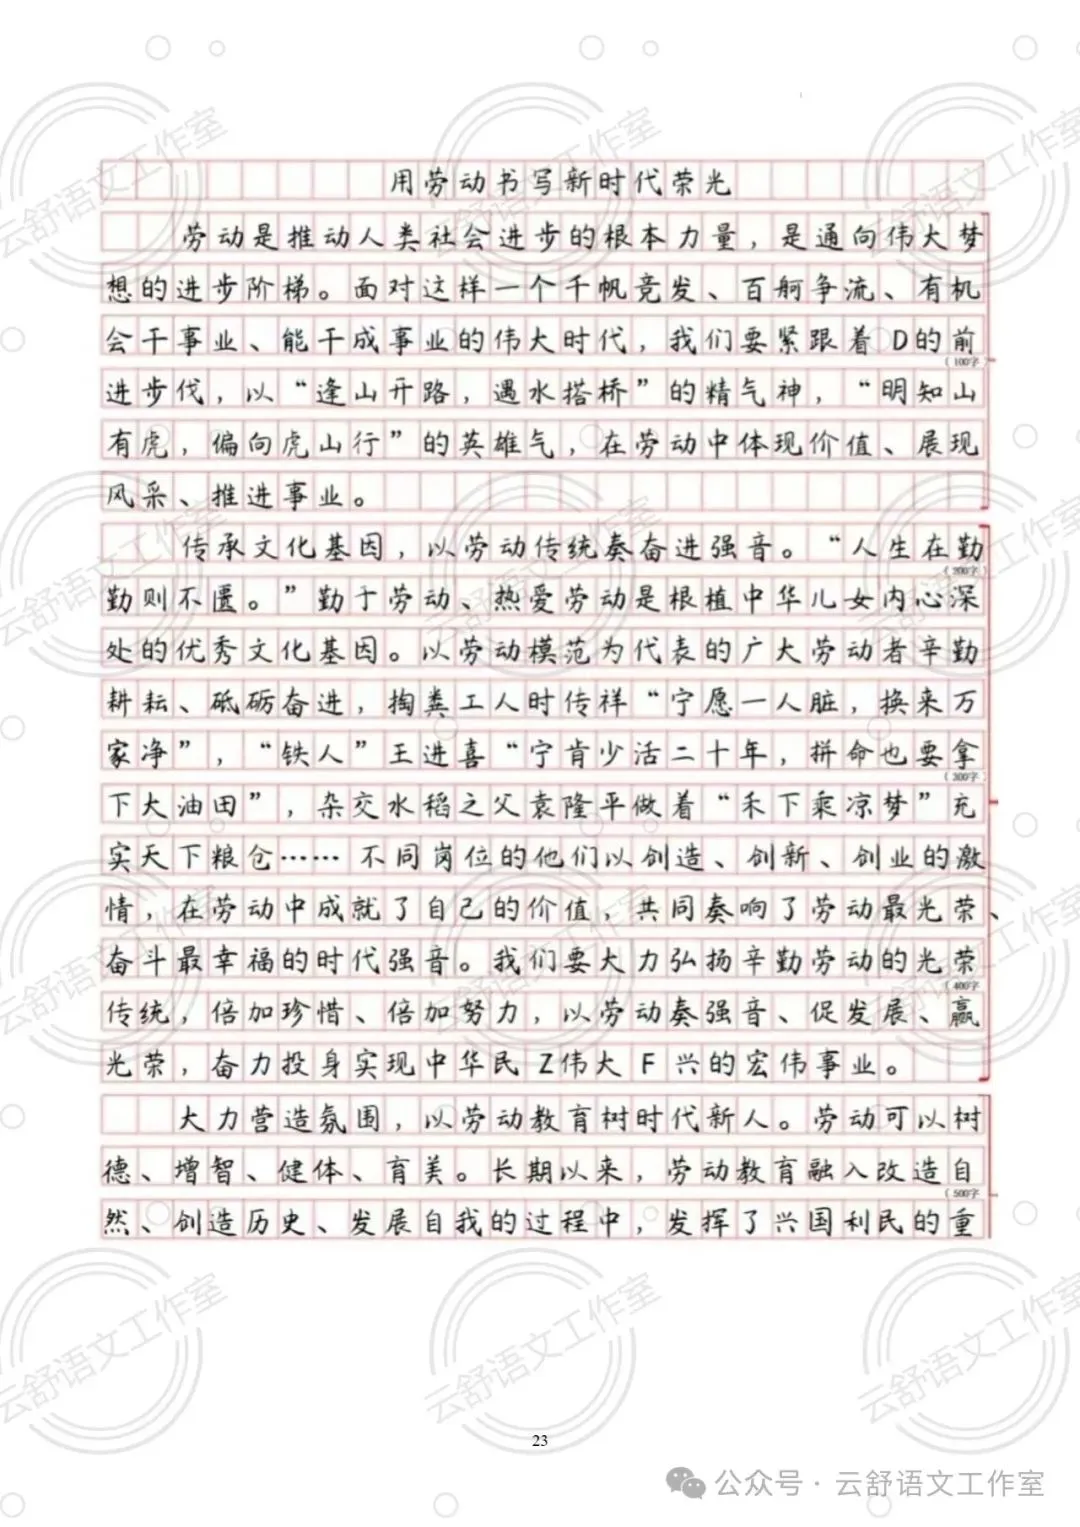 用劳动书写新时代荣光
劳动是推动人类社会进步的根本力量，是通向伟大梦
想的进步阶梯。面对这样一个千帆竞发、百舸争流、有机
会干事业、能干成事业的伟大时代，我们要紧跟着D的前
（100字）
进步伐，以“逢山开路，遇水搭桥”的精气神，“明知山
有虎，偏向虎山行”的英雄气，在劳动中体现价值、展现
风采、推进事业。
传承文化基因，以劳动传统奏奋进强音。“人生在勤
（200字）
勤则不匮。”勤于劳动、热爱劳动是根植中华儿女内心深
处的优秀文化基因。以劳动模范为代表的广大劳动者辛勤
耕耘、砥砺奋进，掏粪工人时传祥“宁愿一人脏，换来万
家净”，“铁人”王进喜“宁肯少活二十年，拼命也要拿
（300字）
下大油田”，杂交水稻之父袁隆平做着“禾下乘凉梦”充
实天下粮仓……不同岗位的他们以创造、创新、创业的激
情，在劳动中成就了自己的价值，共同奏响了劳动最光荣、
奋斗最幸福的时代强音。我们要大力弘扬辛勤劳动的光荣
（400字）
传统，倍加珍惜、倍加努力，以劳动奏强音、促发展、赢
光荣，奋力投身实现中华民Z伟大F兴的宏伟事业。
大力营造氛围，以劳动教育树时代新人。劳动可以树
德、增智、健体、育美。长期以来，劳动教育融入改造自
（500字）
然、创造历史、发展自我的过程中，发挥了兴国利民的重
23
公众号·云舒语文工作室
云舒语文工作室